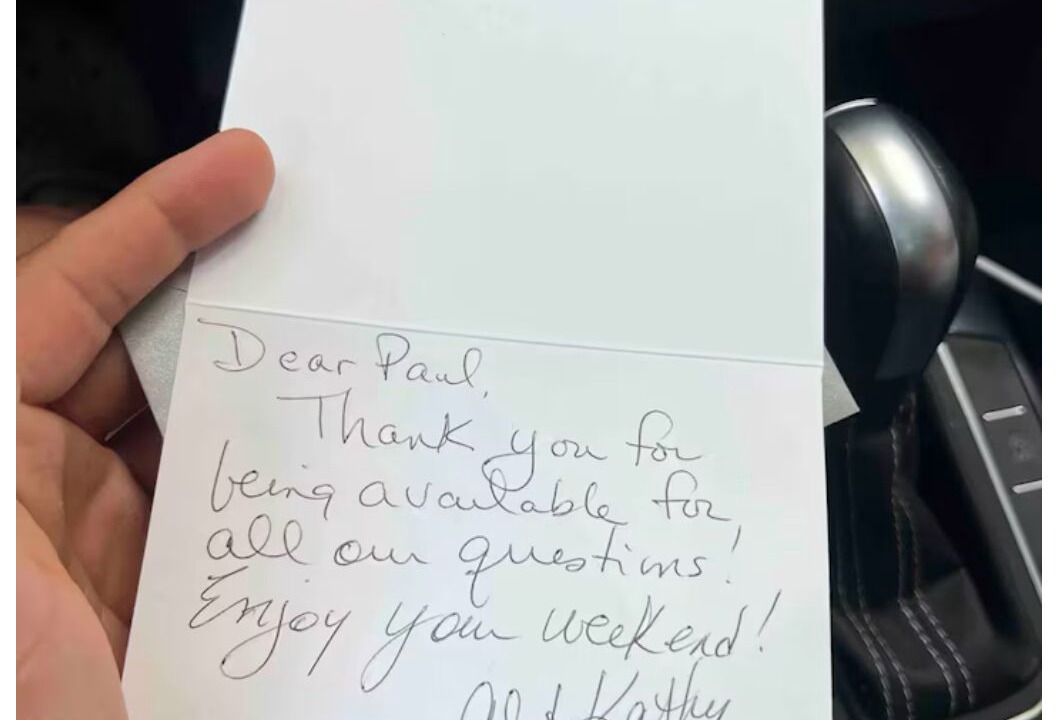 Dear Paul,
Thank you for
being available for
all our questions!
Enjoy your weekend!
Al & Kathy